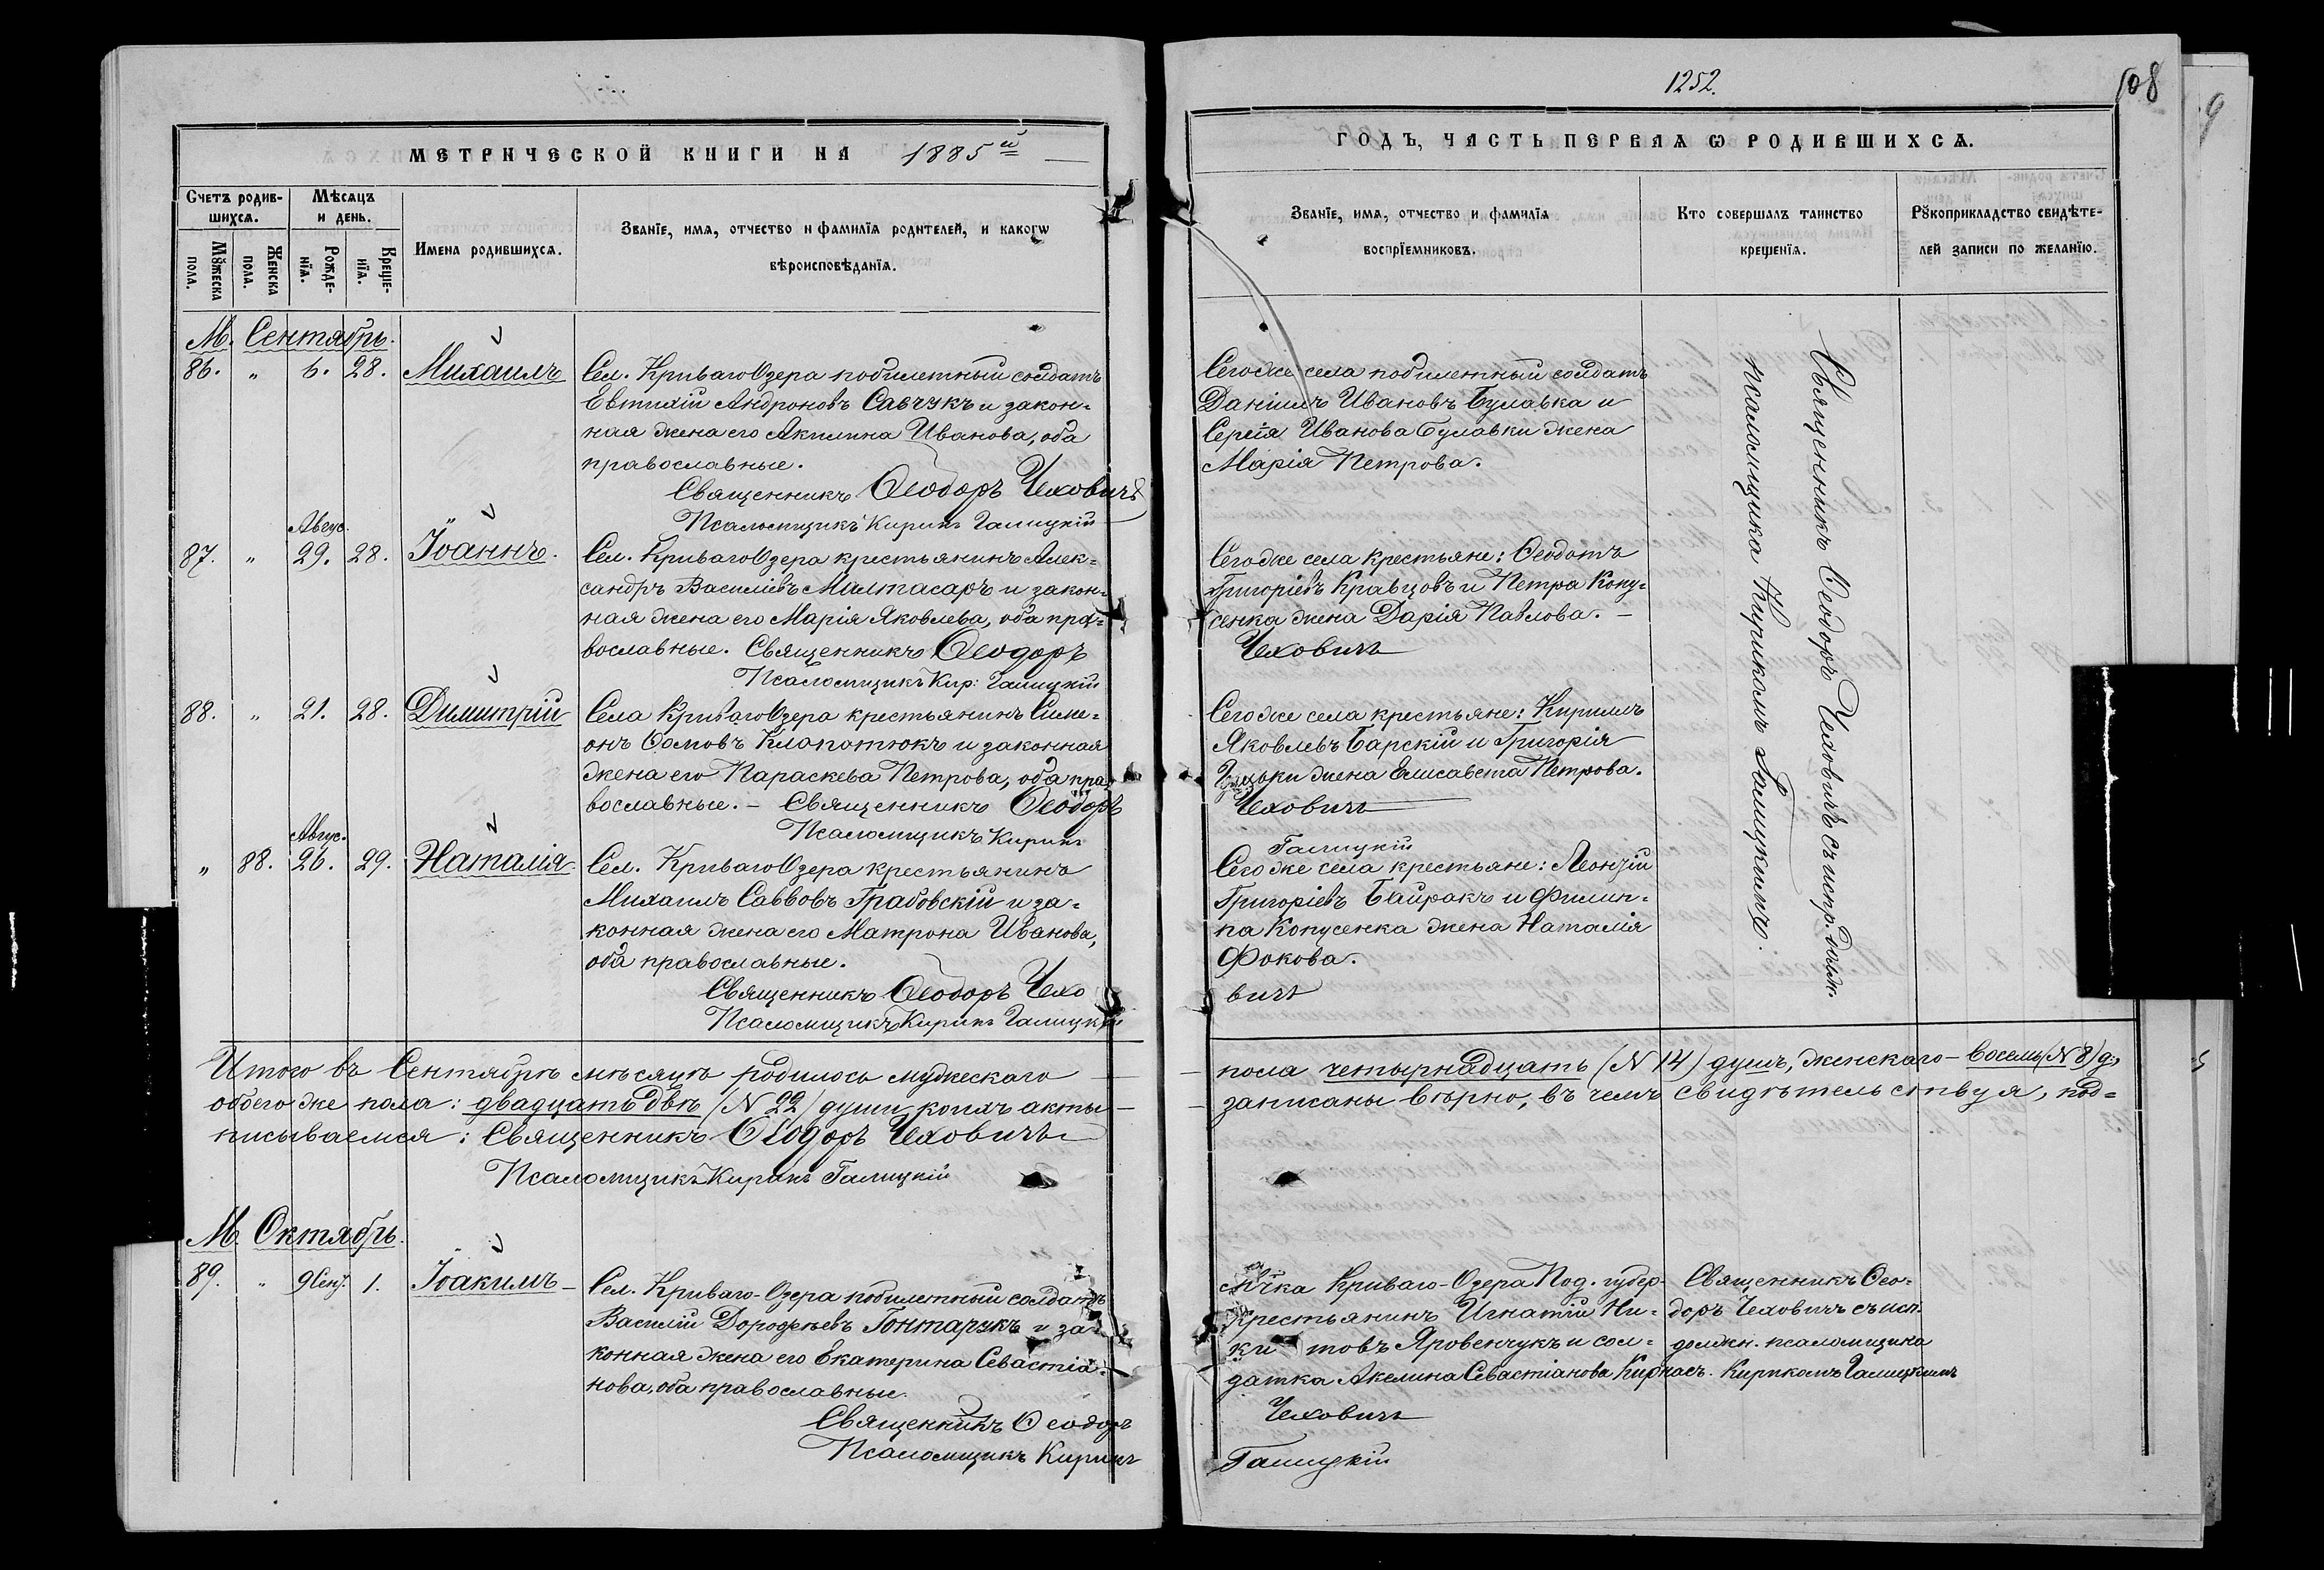 1252.
108
9
МЕТРИЧЕСКОЙ КНИГИ НА 1885й
ГОДЪ, ЧАСТЬ ПЕРВАЯ Ѡ РОДИВШИХСѦ.
Счетъ родив-
шихсѧ.
Мѣсяцъ
и день.
Мꙋжеска
пола.
Женска
пола.
Рожде-
нїѧ.
Креще-
нїѧ.
Имена родившихсѧ.
Званїе, имѧ, отчество и фамилїѧ родителей, и какогѡ
вѣроисповѣданїѧ.
Званїе, имѧ, отчество и фамилїѧ
воспрїемниковъ.
Кто совершалъ таинство
крещенїѧ.
Рꙋкоприкладство свидѣте-
лей записи по желанїю.
М. Сентябрь.
86. " 6. 28. Михаилъ
Сел. Криваго Озера побилетный солдатъ
Евтихій Андроновъ Савчукъ и закон-
ная жена его Акилина Иванова, оба
православные.
Священникъ Ѳеодоръ Чеховичъ
Псаломщикъ Кирикъ Галицкій
Сегоже села побилетный солдатъ
Даніилъ Ивановъ Булавка и
Сергія Иванова Булавки жена
Марія Петрова.
Священникъ Ѳеодоръ Чеховичъ съ испр. долж.
псаломщика Кирикомъ Галицкимъ.
Авгус.
87. " 29. 28. Іоаннъ.
Сел. Криваго Озера крестьянинъ Алек-
сандръ Василіевъ Малтасаръ и закон-
ная жена его Марія Яковлева, оба пра-
вославные. Священникъ Ѳеодоръ
Псаломщикъ Кир: Галицкій
Сегоже села крестьяне: Ѳеодотъ
Григоріевъ Кравцовъ и Петра Копу-
сенка жена Дарія Павлова. —
Чеховичъ
88. " 21. 28. Димитрій
Села Криваго Озера крестьянинъ Симе-
онъ Ѳомовъ Клопотюкъ и законная
жена его Параскева Петрова, оба пра-
вославные. — Священникъ Ѳеодоръ
Псаломщикъ Кирикъ
Сегоже села крестьяне: Кириллъ
Яковлевъ Барскій и Григорія
жена Елисавета Петрова.
Чеховичъ
Галицкій
Авгус.
" 88. 26. 29. Наталія.
Сел. Криваго Озера крестьянинъ
Михаилъ Саввовъ Грабовскій и за-
конная жена его Матрона Иванова,
оба православные.
Священникъ Ѳеодоръ Чехо
Псаломщикъ Кирикъ Галицкій
Сегоже села крестьяне: Леонтій
Григоріевъ Байракъ и Филип-
па Копусенка жена Наталія
Фокова.
вичъ
Итого въ Сентябрѣ мѣсяцѣ родилось мужескаго
— пола четырнадцать (N 14) душъ, женскаго — восемь (N 8) д.,
обоего же пола: двадцать двѣ (N 22) души, коихъ акты —
— записаны вѣрно, въ чемъ свидѣтельствуя, под-
писываемся: Священникъ Ѳеодоръ Чеховичъ
Псаломщикъ Кирикъ Галицкій
М. Октябрь.
89. " 9 Сент. 1. Іоакимъ —
Сел. Криваго-Озера побилетный солдатъ
Василій Дороѳеевъ Гонтарукъ и за-
конная жена его Екатерина Севастіа-
нова, оба православные.
Священникъ Ѳеодоръ
Псаломщикъ Кирикъ
Криваго-Озера Под. губер.
крестьянинъ Игнатій Ни-
ки товъ Яровенчукъ и сол-
датка Акелина Севастіанова Кирнасъ.
Чеховичъ
Галицкій
Священникъ Ѳео-
доръ Чеховичъ съ исп.
должн. псаломщика
Кирикомъ Галицкимъ